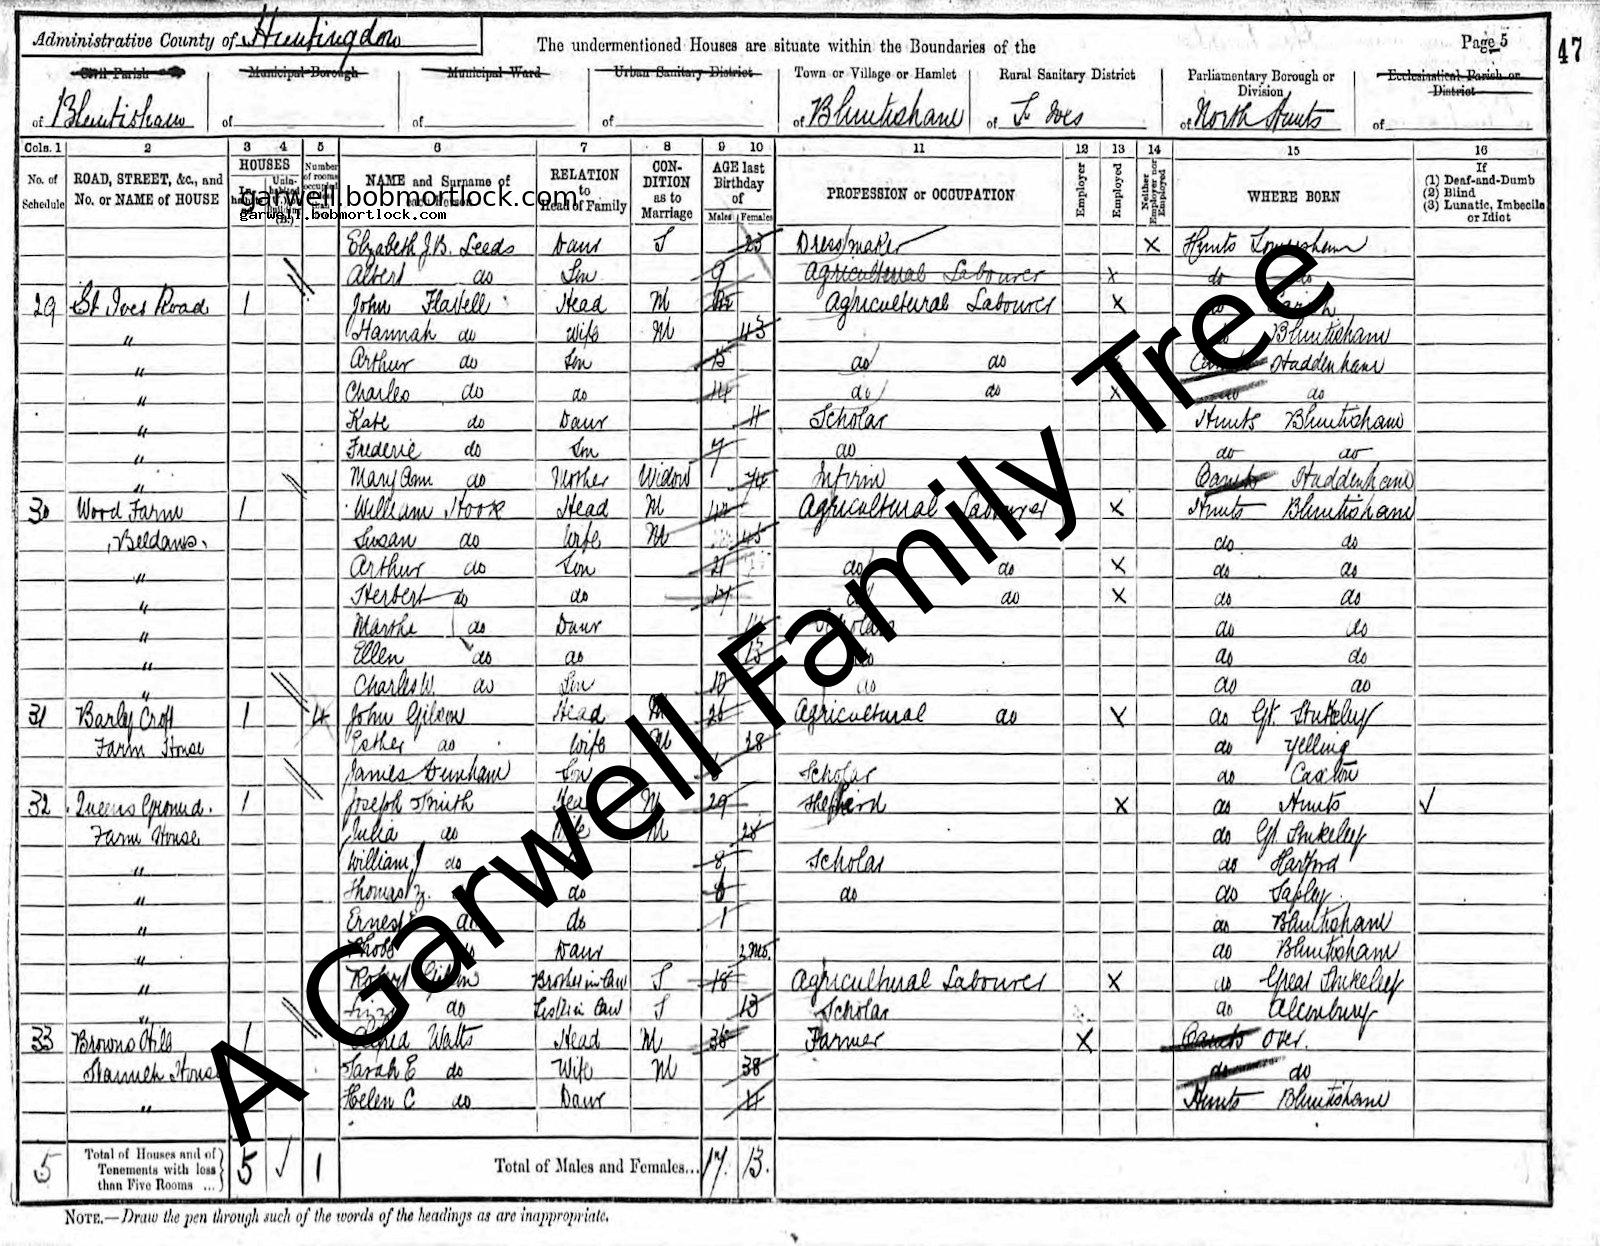 Administrative County of Huntingdon
The undermentioned Houses are situate within the Boundaries of the
Page 5
47
Civil Parish
Municipal Borough
Municipal Ward
Urban Sanitary District
Town or Village or Hamlet
Rural Sanitary District
Parliamentary Borough or Division
Ecclesiastical Parish or District
of Bluntisham of of of of Bluntisham of St Ives of North Hunts of
Cols. 1 2 3 4 5 6 7 8 9 10 11 12 13 14 15 16
No. of Schedule
ROAD, STREET, &c., and No. or NAME of HOUSE
HOUSES
Number of rooms occupied
NAME and Surname of
RELATION to Head of Family
CONDITION as to Marriage
AGE last Birthday of
Males Females
PROFESSION or OCCUPATION
Employer
Employed
Neither Employer nor Employed
WHERE BORN
If
(1) Deaf-and-Dumb
(2) Blind
(3) Lunatic, Imbecile or Idiot
garwell.bobmortlock.com
garwell.bobmortlock.com
Elizabeth J.B. Leeds Daur S 23 Dressmaker X Hunts
Albert do Son 9 Agricultural Labourer X do do
29 St Ives Road 1 John Flavell Head M Agricultural Labourer X
" Hannah do Wife M 43 Bluntisham
" Arthur do Son 15 do do Cambs Haddenham
" Charles do do 14 do do X do do
" Kate do Daur 11 Scholar Hunts Bluntisham
" Frederic do Son 7 do do do
" Mary Ann do Mother Widow 74 Infirm Cambs Haddenham
30 Wood Farm 1 William Hook Head M Agricultural Labourer X Hunts Bluntisham
Beldams Susan do Wife M 45 do do
" Arthur do Son 21 do do X do do
" Herbert do do 17 do do X do do
" Martha do Daur Scholar do do
" Ellen do do 13 do do do
" Charles W. do Son 10 do do do
31 Barley Croft 1 4 John Gilson Head M 26 Agricultural do X do Gt. Stukeley
Farm House Esther do Wife M 28 do Yelling
James Dunham Son Scholar do Caxton
32 Queens Ground 1 Joseph Smith Head M 29 Shepherd X do Hunts ✓
Farm House Julia do Wife M 28 do Gt. Stukeley
" William J do 8 Scholar do Hartford
" Thomas do 6 do do Sapley
" Ernest do do 1 do Bluntisham
" do Daur 2 mo. do Bluntisham
" Robert Gilson Brother in Law S 18 Agricultural Labourer X do Great Stukeley
" do Sister in Law S 13 Scholar do Alconbury
33 Browns Hill 1 Alfred Watts Head M 36 Farmer X Cambs Over.
Staunch House Sarah E do Wife M 38 do do
" Helen C do Daur 11 Hunts Bluntisham
5 Total of Houses and of Tenements with less than Five Rooms ... 5 ✓ 1 Total of Males and Females... 17 13
NOTE.—Draw the pen through such of the words of the headings as are inappropriate.
A Garwell Family Tree